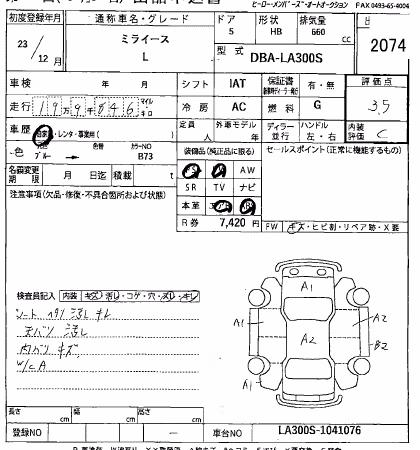 ヒーロー・メンバーズ・オートオークション FAX 0493-65-4004
初度登録年月 通称車名・グレード ドア 形状 排気量
23/12月 ミライース L 5 HB 660 cc 2074
型式 DBA-LA300S
車検 年 月 シフト IAT 保証書 有・無 評価点
走行 19万9846 マイル キロ 冷房 AC 燃料 G 3.5
車歴 自家用・レンタ・事業用( ) 定員 人 外車モデル 年 ディーラー 並行 ハンドル 左・右 内装評価 C
色 ブルー → 色替 カラーNO B73 装備品(純正品に限る) セールスポイント(正常に機能するもの)
AW
名義変更期限 月 日迄 積載 t SR TV ナビ
注意事項(欠品・修復・不具合箇所および状態) 本革
R券 7,420 円 FW キズ・ヒビ割・リペア跡・X要
検査員記入 内装 キズ・汚し・コゲ・穴・スレ・キレ
シート ヘタリ 汚し キレ
天バリ 汚し
内バリ キズ
W/C A
A1
A1 A2 A2
B2
A1 A1
長さ cm 幅 cm 高さ cm
登録NO ― 車台NO LA300S-1041076